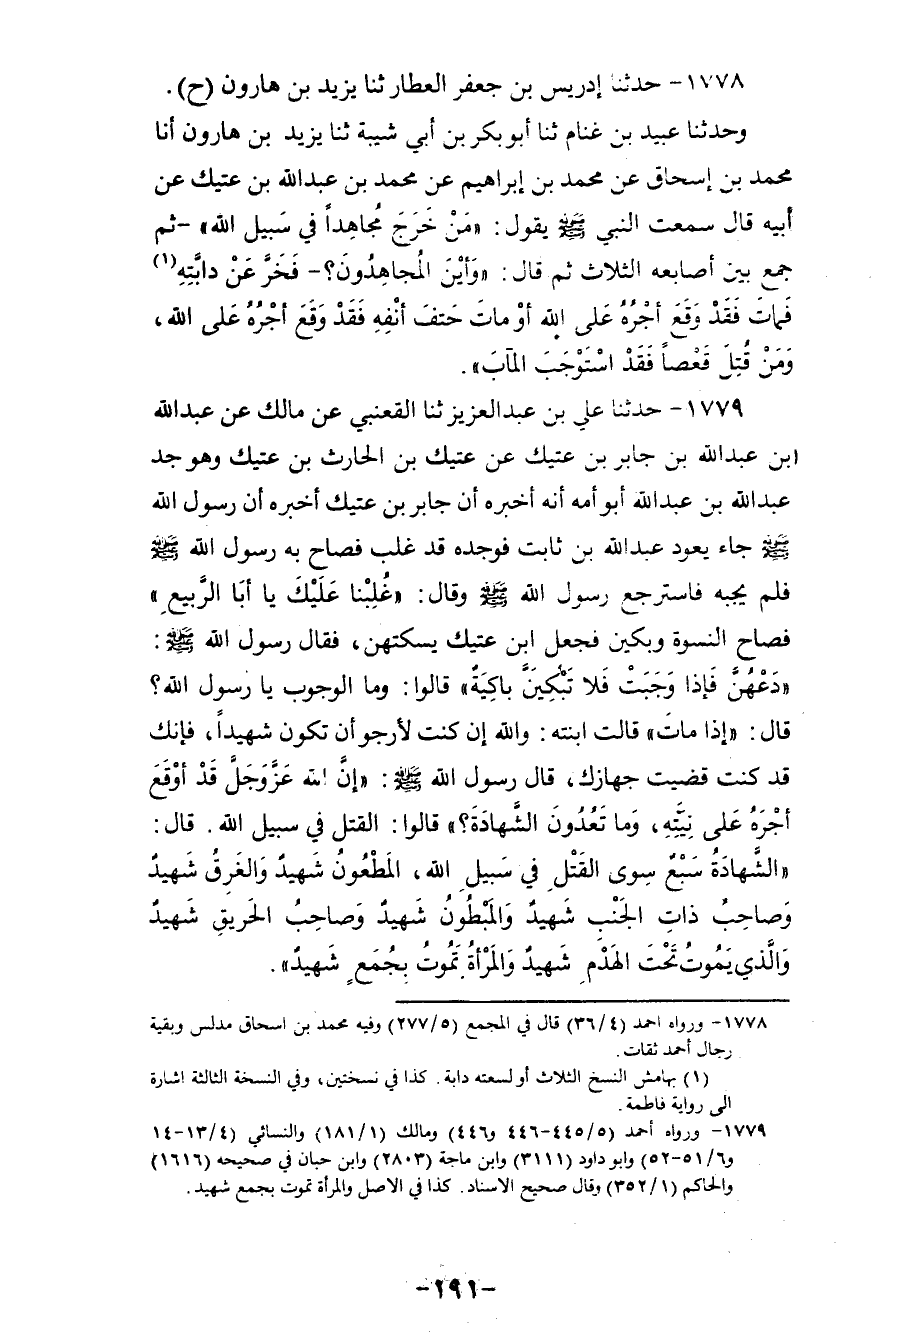 ١٧٧٨ـ حدثنا إدريس بن جعفر العطار ثنا يزيد بن هارون (ح).
وحدثنا عبيد بن غنام ثنا أبو بكر بن أبي شيبة ثنا يزيد بن هارون أنا
محمد بن إسحاق عن محمد بن إبراهيم عن محمد بن عبدالله بن عتيك عن
أبيه قال سمعت النبي ﷺ يقول: «مَنْ خَرَجَ مُجاهِداً في سَبيل الله» -ثم
جمع بين أصابعه الثلاث ثم قال: «وَأيْنَ المُجاهِدُونَ؟- فَخَرَّ عَنْ دابَّتِهِ(١)
فَماتَ فَقَدْ وَقَعَ أجْرُهُ عَلى اللهِ أوْ ماتَ حَتفَ أنْفِهِ فَقَدْ وَقَعَ أجْرُهُ عَلى الله،
وَمَنْ قُتِلَ قَعْصاً فَقَدْ اسْتَوْجَبَ المَآبَ».
١٧٧٩ـ حدثنا علي بن عبدالعزيز ثنا القعنبي عن مالك عن عبدالله
ابن عبدالله بن جابر بن عتيك عن عتيك بن الحارث بن عتيك وهو جد
عبدالله بن عبدالله أبو أمه أنه أخبره أن جابر بن عتيك أخبره أن رسول الله
ﷺ جاء يعود عبدالله بن ثابت فوجده قد غلب فصاح به رسول الله ﷺ
فلم يجبه فاسترجع رسول الله ﷺ وقال: «غُلِبْنا عَلَيْكَ يا أبَا الرَّبيعِ»
فصاح النسوة وبكين فجعل ابن عتيك يسكتهن، فقال رسول الله ﷺ:
«دَعْهُنَّ فَإذا وَجَبَتْ فَلا تَبْكِيَنَّ باكِيَةٌ» قالوا: وما الوجوب يا رسول الله؟
قال: «إذا ماتَ» قالت ابنته: والله إن كنت لأرجو أن تكون شهيداً، فإنك
قد كنت قضيت جهازك، قال رسول الله ﷺ: «إنَّ الله عَزَّوَجَلَّ قَدْ أوْقَعَ
أجْرَهُ عَلى نِيَّتِهِ، وَما تَعُدُّونَ الشَّهادَةَ؟» قالوا: القتل في سبيل الله. قال:
«الشَّهادَةُ سَبْعٌ سِوى القَتْلِ في سَبيلِ الله، المَطْعُونُ شَهيدٌ وَالغَرِقُ شَهيدٌ
وَصاحِبُ ذاتِ الجَنْبِ شَهيدٌ وَالمَبْطُونُ شَهيدٌ وَصاحِبُ الحَريقِ شَهيدٌ
وَالَّذي يَمُوتُ تَحْتَ الهَدْمِ شَهيدٌ وَالمَرْأةُ تَمُوتُ بِجُمَعٍ شَهيدٌ».
١٧٧٨ـ ورواه احمد (٣٦/٤) قال في المجمع (٢٧٧/٥) وفيه محمد بن اسحاق مدلس وبقية
رجال أحمد ثقات.
(١) بهامش النسخ الثلاث أو لسعته دابة. كذا في نسختين، وفي النسخة الثالثة اشارة
الى رواية فاطمة.
١٧٧٩ـ ورواه أحمد (٤٤٥/٥-٤٤٦ و٤٤٦) ومالك (١٨١/١) والنسائي (١٣/٤-١٤
و٥١/٦-٥٢) وابو داود (٣١١١) وابن ماجة (٢٨٠٣) وابن حبان في صحيحه (١٦١٦)
والحاكم (٣٥٢/١) وقال صحيح الاسناد. كذا في الاصل والمرأة تموت بجمع شهيد.
-٢٩١-